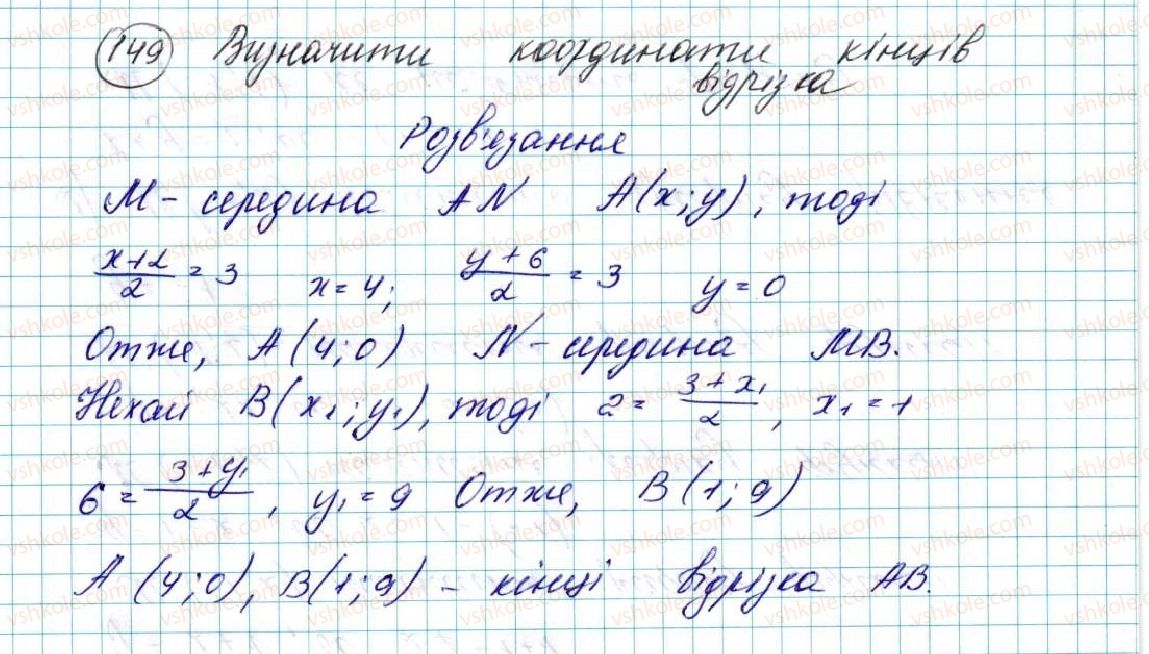 149 Визначити координати кінців
відрізка
Розв'язання
M - середина AN A(x;y), тоді
x+2/2 = 3 x = 4; y+6/2 = 3 y = 0
Отже, A(4;0) N - середина MB.
Нехай B(x₁;y₁), тоді 2 = 3+x₁/2, x₁ = 1
6 = 3+y₁/2, y₁ = 9 Отже, B(1;9)
A(4;0), B(1;9) - кінці відрізка AB.